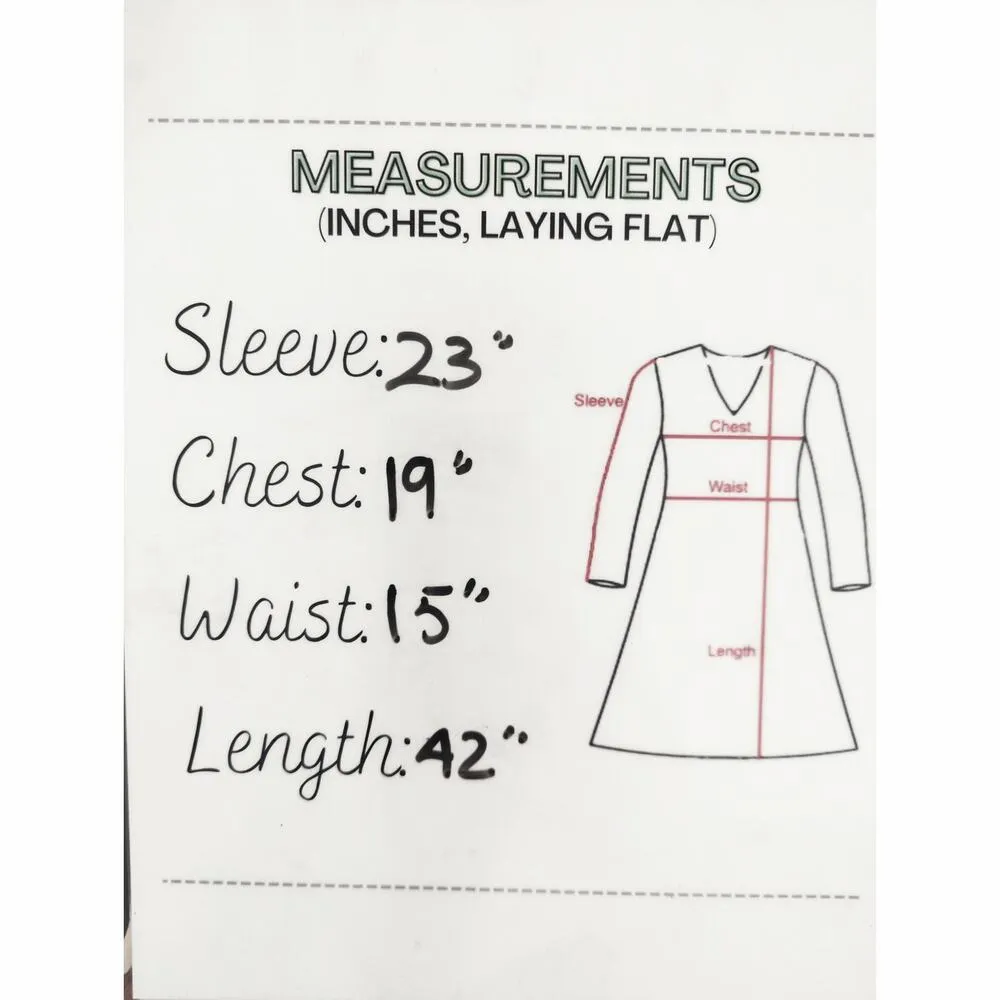 MEASUREMENTS
(INCHES, LAYING FLAT)
Sleeve: 23"
Chest: 19"
Waist: 15"
Length: 42"
Sleeve
Chest
Waist
Length